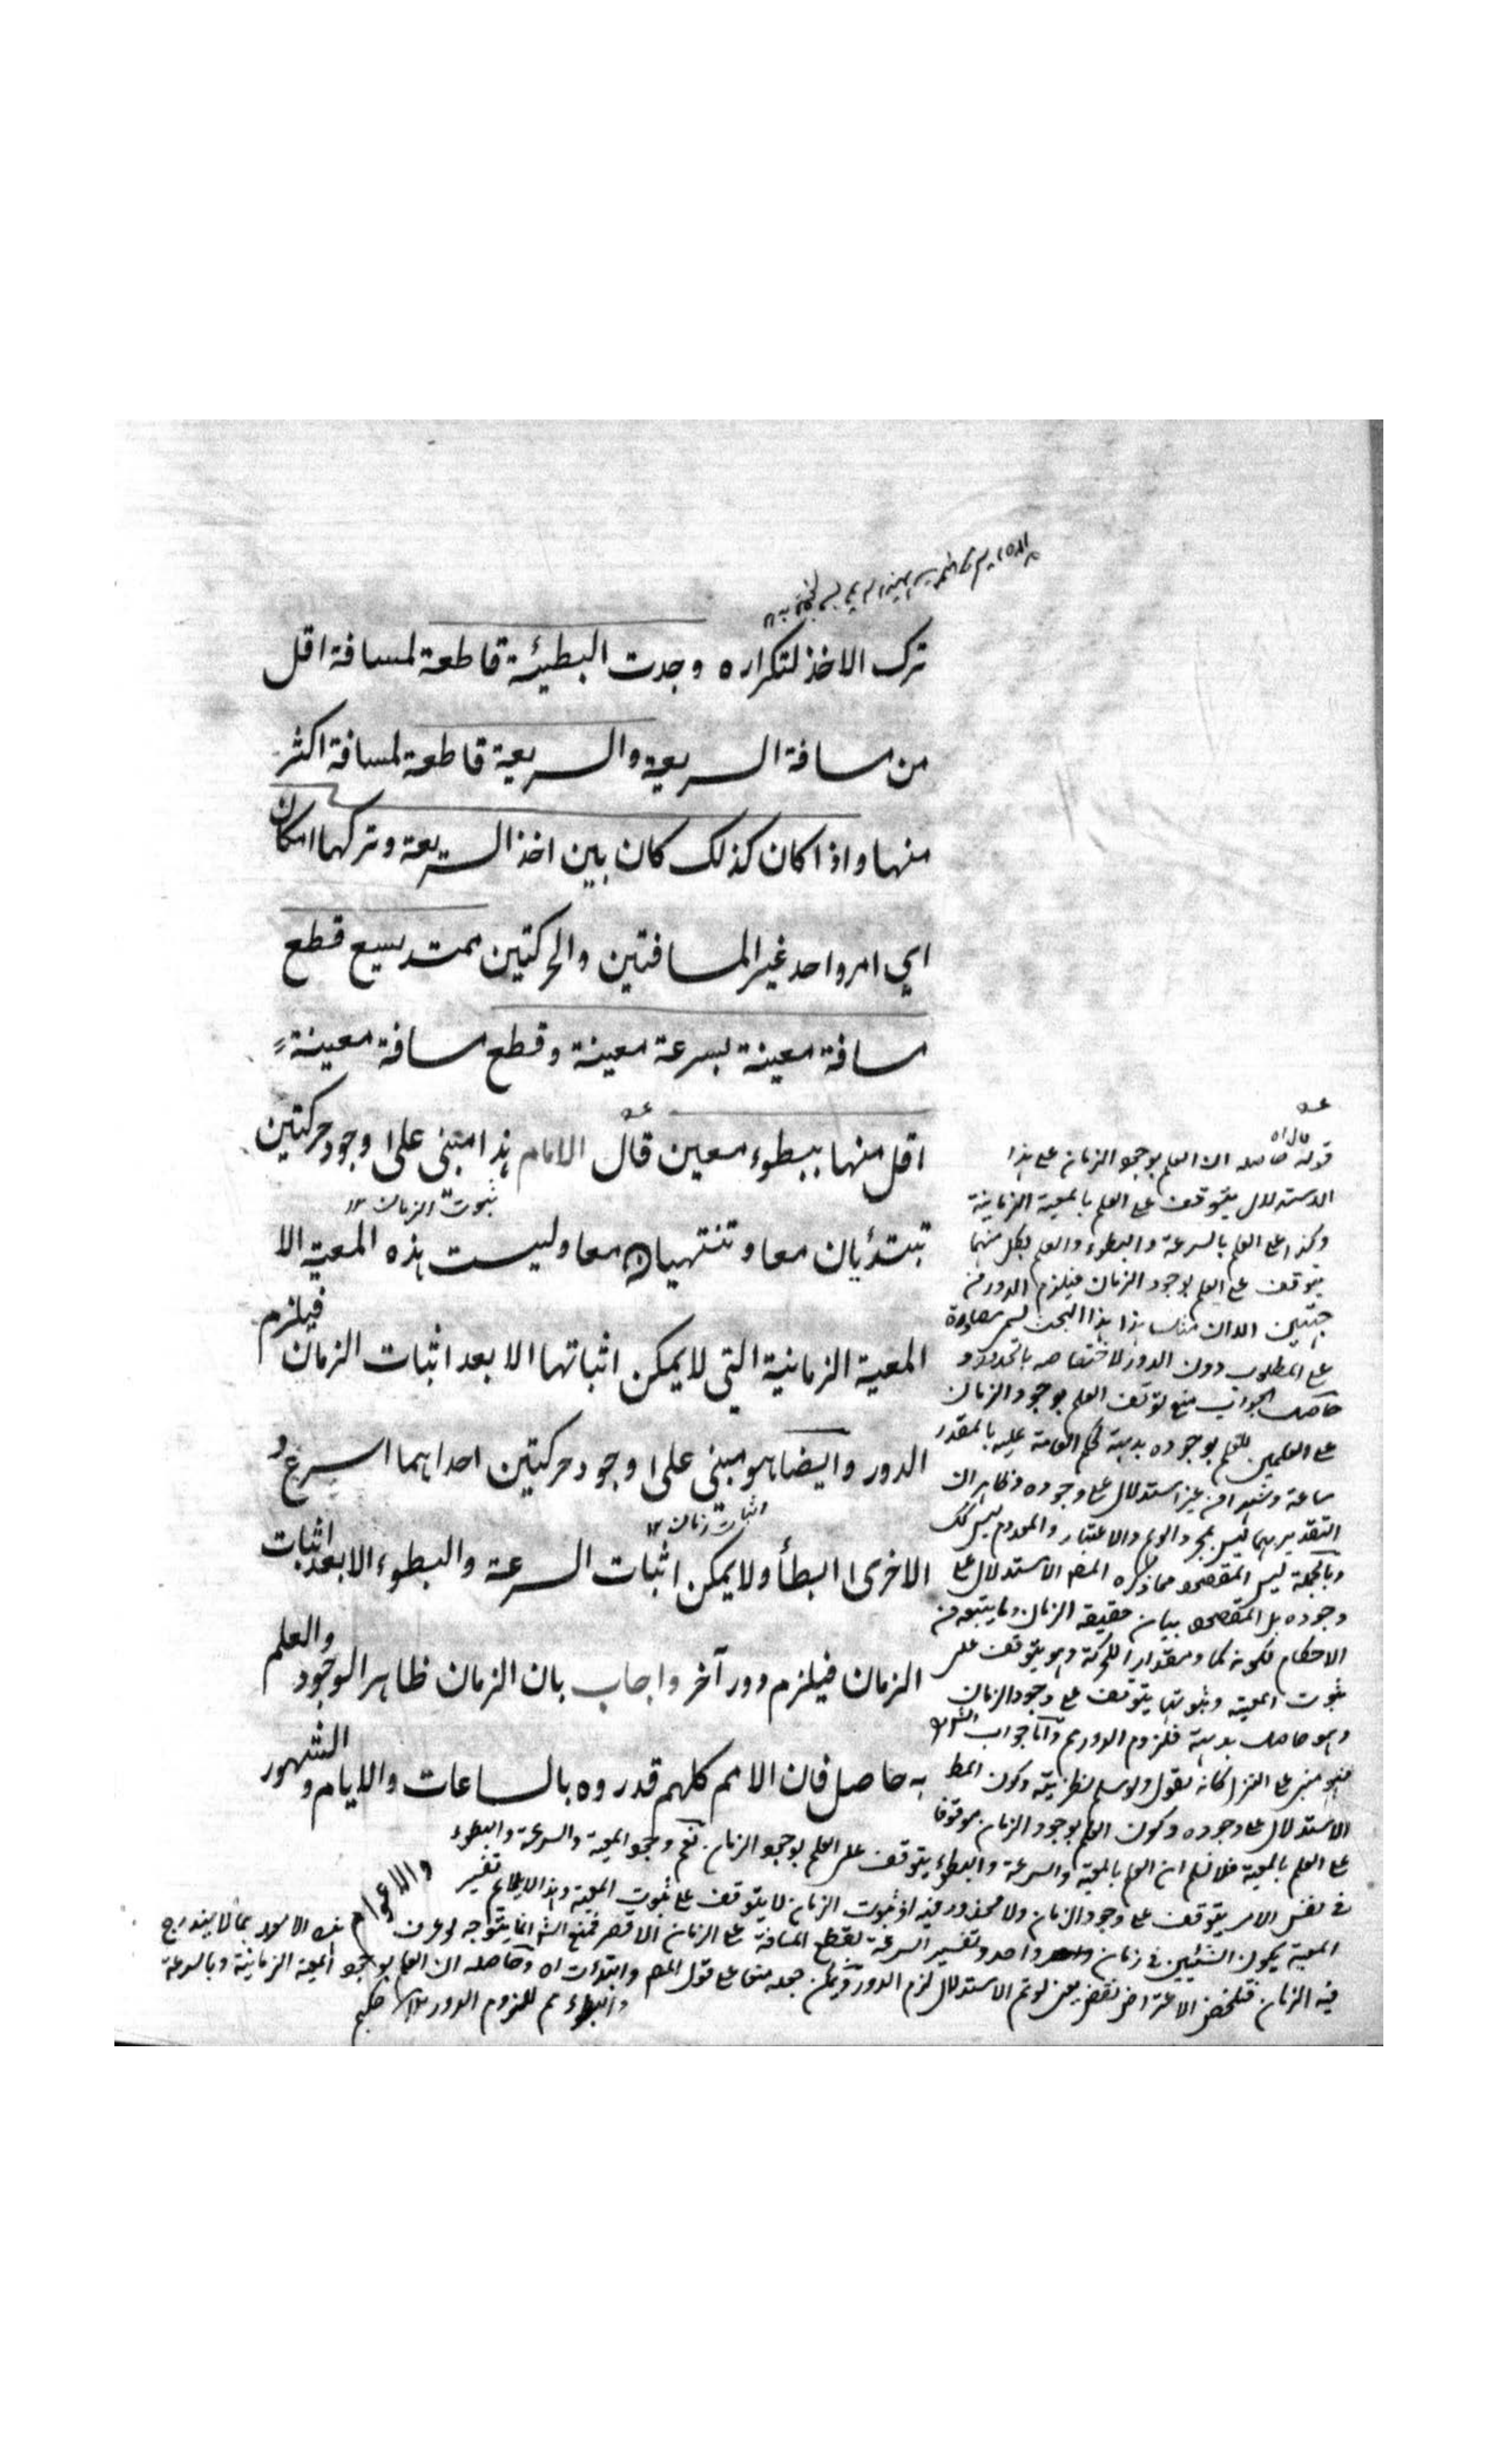 ترك الاخذ لتكراره وجدت البطيئة قاطعة لمسافة اقل
من مسافة السريعة والسريعة قاطعة لمسافة اكثر
منها واذا كان كذلك كان بين اخذ السريعة وتركها امكان
اي امر واحد غير المسافتين والحركتين ممتد يسع قطع
مسافة معينة بسرعة معينة وقطع مسافة معينة
اقل منها ببطوء معين قال الامام هذا مبنى على وجود حركتين
ثبوت الزمان ١٢
تبتدئان معا وتنتهيان معا وليست هذه المعية الا
المعية الزمانية التي لا يمكن اثباتها الا بعد اثبات الزمان فيلزم
الدور وايضا هو مبنى على وجود حركتين احداهما اسرع و
اثبات زمان ١٢
الاخرى ابطأ ولا يمكن اثبات السرعة والبطوء الا بعد اثبات
الزمان فيلزم دور آخر واجاب بان الزمان ظاهر الوجود والعلم
به حاصل فان الامم كلهم قدروه بالساعات والايام والشهور
والاعوام
قوله قال اه حاصله ان العلم بوجود الزمان على هذا
الاستدلال يتوقف على العلم بالمعية الزمانية
وكذا على العلم بالسرعة والبطوء والعلم بكل منهما
يتوقف على العلم بوجود الزمان فيلزم الدور من
جهتين الا ان مثل هذا البحث يسمى مصادرة
على المطلوب دون الدور لاختصاصه بالحدود و
حاصل الجواب منع توقف العلم بوجود الزمان
على العلمين للعلم بوجوده بديهة لحكم العامة عليه بالمقدر
ساعة وشهرا من غير استدلال على وجوده وظاهر ان
التقدير بهما ليس بمجرد الوهم والاعتبار والمعدوم ليس كك
وبالجملة ليس المقصود مما ذكره المصـ الاستدلال على
وجوده بل المقصود بيان حقيقة الزمان وما يتبعه من
الاحكام لكونه كما ومقدارا للحركة وهو يتوقف على
ثبوت المعية وثبوتها يتوقف على وجود الزمان
وهو حاصل بديهة فلزوم الدور مم واما جواب الشـ
فهو مبنى على التنزل كانه يقول ولو سلم نظريته وكون المط
الاستدلال على وجوده وكون العلم بوجود الزمان موقوفا
على العلم بالمعية فلا نسلم ان العلم بالمعية والسرعة والبطوء يتوقف على العلم بوجود الزمان نعم وجود المعية والسرعة والبطوء
في نفس الامر يتوقف على وجود الزمان ولا محذور فيه اذ ثبوت الزمان لا يتوقف على ثبوت المعية وهذا لا يلائم تفسير
المعية بكون الشيئين في زمان واحد وتفسير السرعة بقطع المسافة في الزمان الاقصر فمنع الشـ انما يتوجه لو عرف هذه الامور بما لا يندرج
فيه الزمان فتلخص الاعتراض نقض يعنى لو تم الاستدلال لزم الدور ويمكن جعله منعا على قول المصـ وابتدأت اه وحاصله ان العلم بوجود المعية الزمانية وبالسرعة
والبطوء مم للزوم الدور ١٢ حكيم